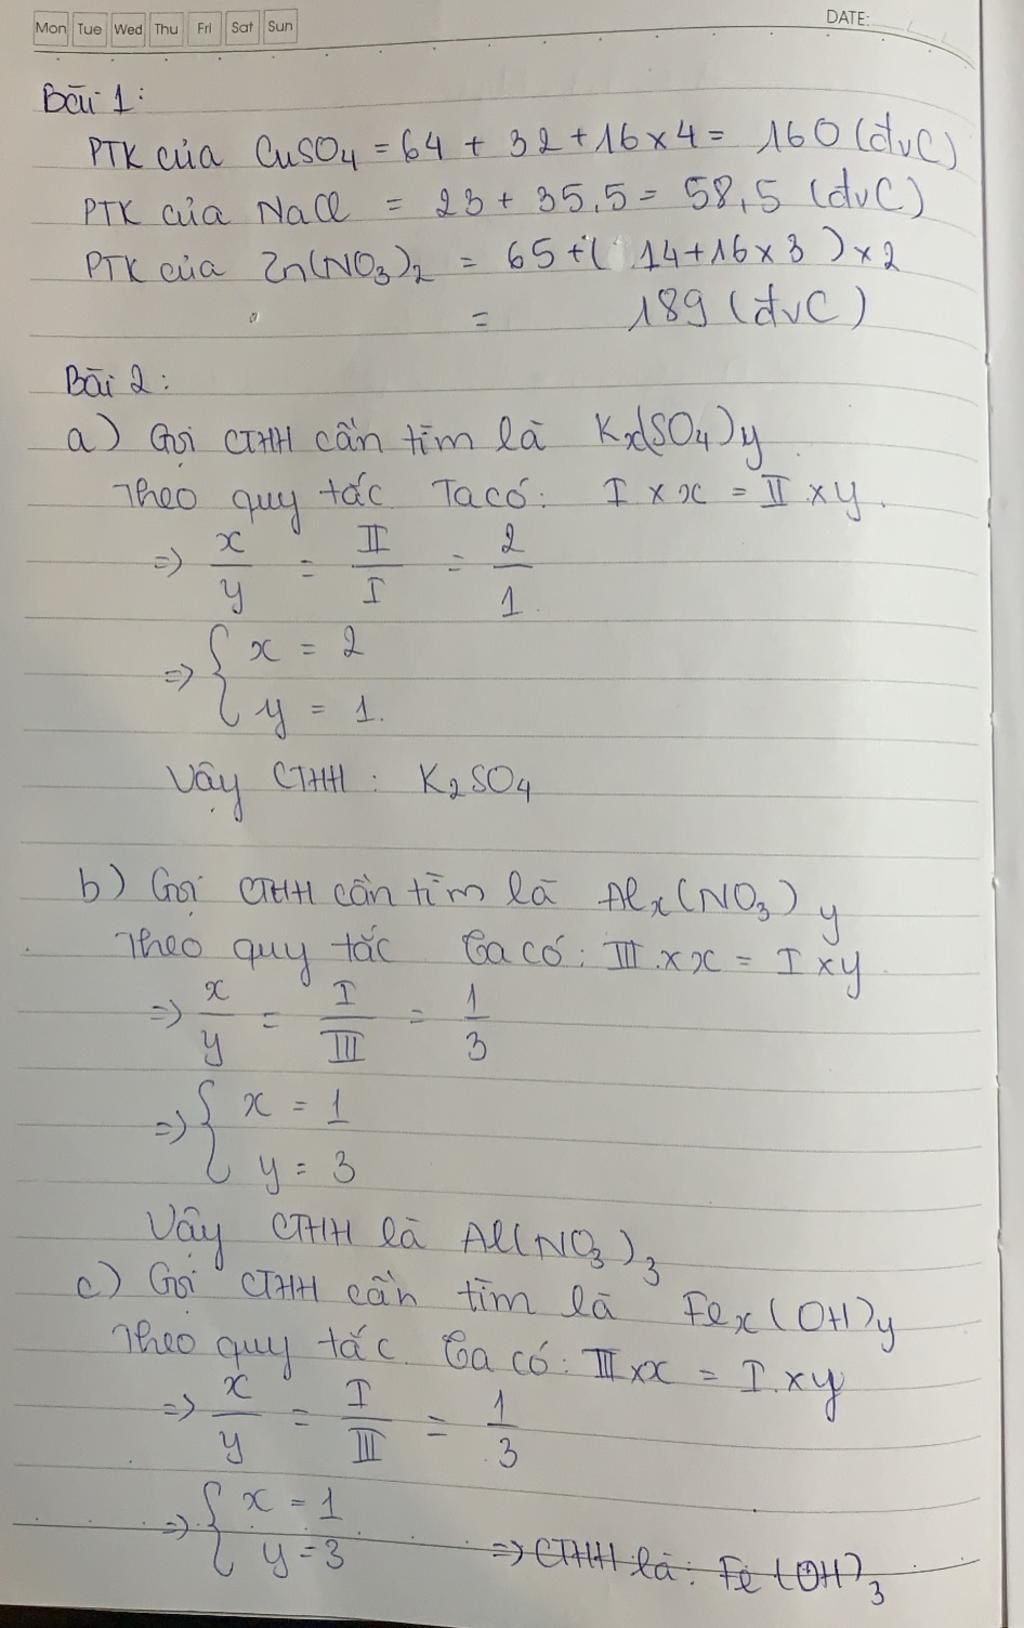 Mon Tue Wed Thu Fri Sat Sun DATE:
Bài 1:
PTK của CuSO4 = 64 + 32 + 16 x 4 = 160 (đvC)
PTK của NaCl = 23 + 35,5 = 58,5 (đvC)
PTK của Zn(NO3)2 = 65 + ( 14 + 16 x 3 ) x 2
= 189 (đvC)
Bài 2:
a) Gọi CTHH cần tìm là Kx(SO4)y
Theo quy tắc Ta có: I x x = II x y.
=> x/y = II/I = 2/1
=> { x = 2
y = 1.
Vậy CTHH : K2SO4
b) Gọi CTHH cần tìm là Alx(NO3)y
Theo quy tắc Ta có: III x x = I x y
=> x/y = I/III = 1/3
=> { x = 1
y = 3
Vậy CTHH là Al(NO3)3
c) Gọi CTHH cần tìm là Fex(OH)y
Theo quy tắc. Ta có: III x x = I x y
=> x/y = I/III = 1/3
=> { x = 1
y = 3 => CTHH là: Fe(OH)3